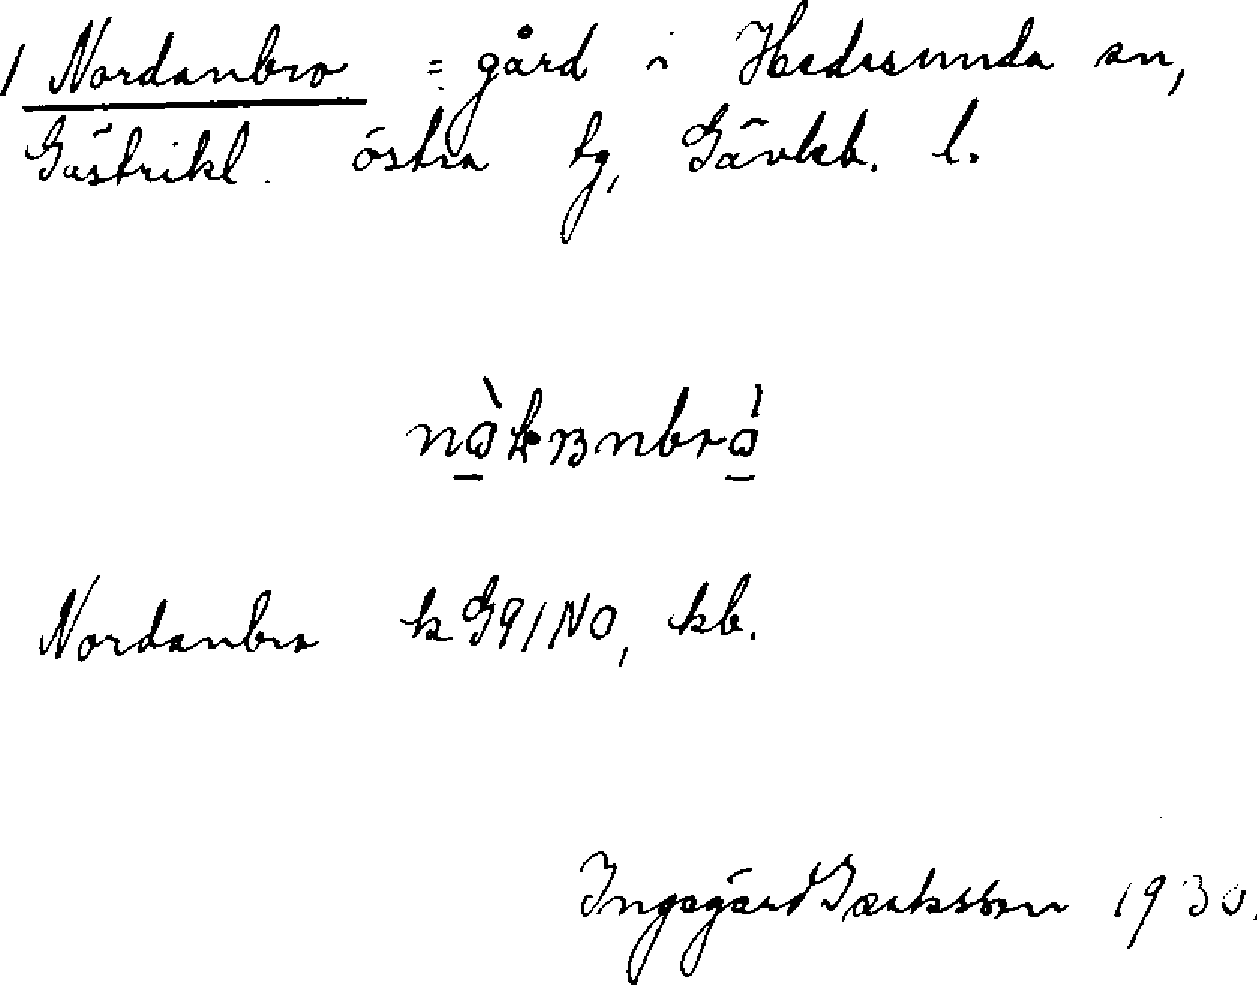 1 Nordanbro = gård i Hedesunda sn,
Gästrikl. östra tg, Gävleb. l.
Nordanbro k G91NO, kb.
Ingegärd Isaksson 1930.